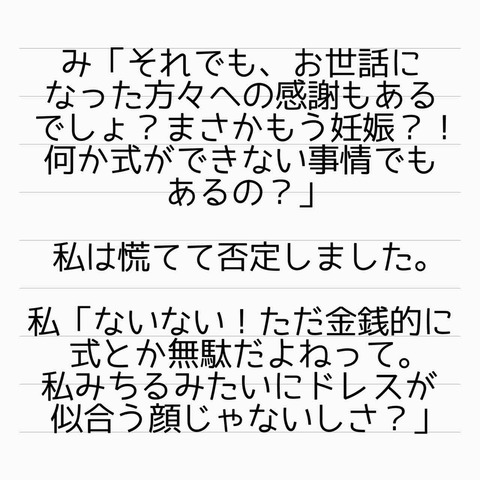 み「それでも、お世話に
なった方々への感謝もある
でしょ？まさかもう妊娠？！
何か式ができない事情でも
あるの？」
私は慌てて否定しました。
私「ないない！ただ金銭的に
式とか無駄だよねって。
私みちるみたいにドレスが
似合う顔じゃないしさ？」